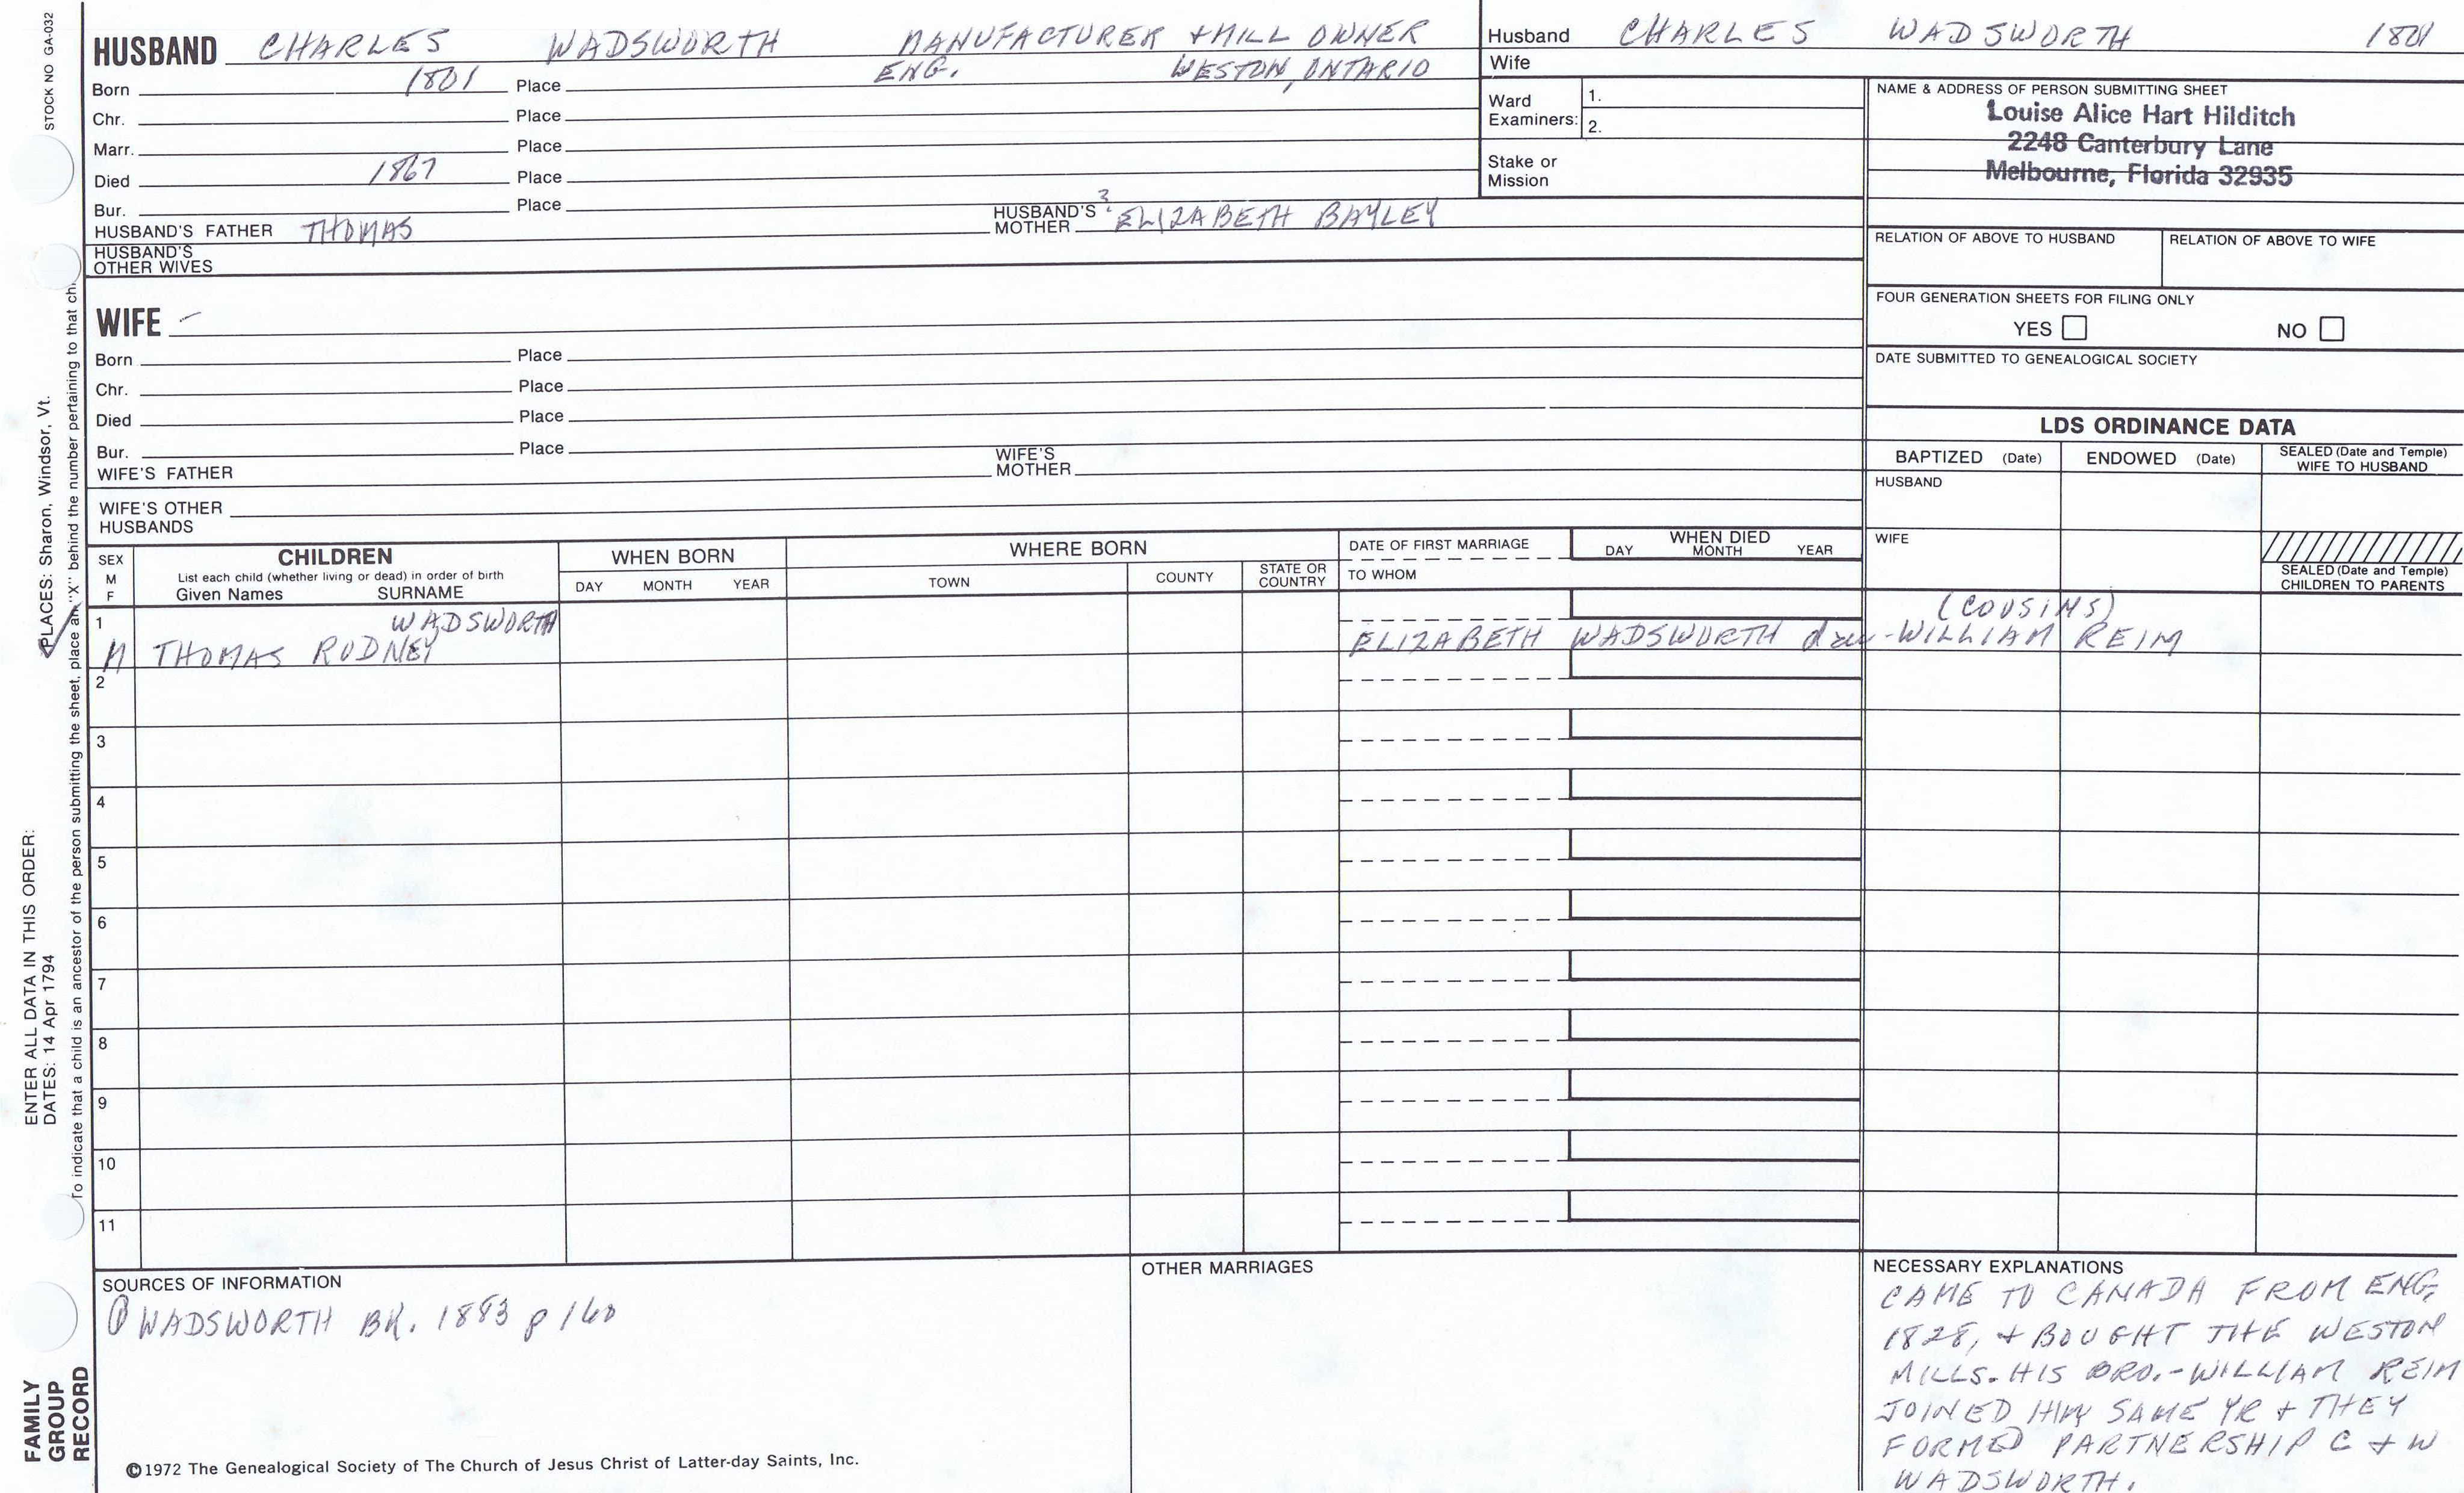 STOCK NO GA-032
HUSBAND CHARLES WADSWORTH MANUFACTURER + MILL OWNER
Born 1801 Place ENG. WESTON, ONTARIO
Chr. Place
Marr. Place
Died 1867 Place
Bur. Place
HUSBAND'S FATHER THOMAS HUSBAND'S MOTHER ? ELIZABETH BAYLEY
HUSBAND'S OTHER WIVES
WIFE –
Born Place
Chr. Place
Died Place
Bur. Place
WIFE'S FATHER WIFE'S MOTHER
WIFE'S OTHER HUSBANDS
Husband CHARLES WADSWORTH 1801
Wife
Ward Examiners: 1.
2.
Stake or Mission
NAME & ADDRESS OF PERSON SUBMITTING SHEET
Louise Alice Hart Hilditch
2248 Canterbury Lane
Melbourne, Florida 32935
RELATION OF ABOVE TO HUSBAND RELATION OF ABOVE TO WIFE
FOUR GENERATION SHEETS FOR FILING ONLY
YES NO
DATE SUBMITTED TO GENEALOGICAL SOCIETY
LDS ORDINANCE DATA
BAPTIZED (Date) ENDOWED (Date) SEALED (Date and Temple) WIFE TO HUSBAND
HUSBAND
WIFE
SEALED (Date and Temple) CHILDREN TO PARENTS
SEX M F
CHILDREN
List each child (whether living or dead) in order of birth
Given Names SURNAME
WHEN BORN
DAY MONTH YEAR
WHERE BORN
TOWN COUNTY STATE OR COUNTRY
DATE OF FIRST MARRIAGE
TO WHOM
WHEN DIED
DAY MONTH YEAR
1 WADSWORTH (COUSINS)
M THOMAS RODNEY ELIZABETH WADSWORTH dau-WILLIAM REIM
2
3
4
5
6
7
8
9
10
11
SOURCES OF INFORMATION
① WADSWORTH BK. 1883 p 160
OTHER MARRIAGES
NECESSARY EXPLANATIONS
CAME TO CANADA FROM ENG,
1828, + BOUGHT THE WESTON
MILLS. HIS BRO.-WILLIAM REIM
JOINED HIM SAME YR + THEY
FORMED PARTNERSHIP C + W
WADSWORTH.
©1972 The Genealogical Society of The Church of Jesus Christ of Latter-day Saints, Inc.
FAMILY
GROUP
RECORD
ENTER ALL DATA IN THIS ORDER:
DATES: 14 Apr 1794
PLACES: Sharon, Windsor, Vt.
To indicate that a child is an ancestor of the person submitting the sheet, place an "X" behind the number pertaining to that ch